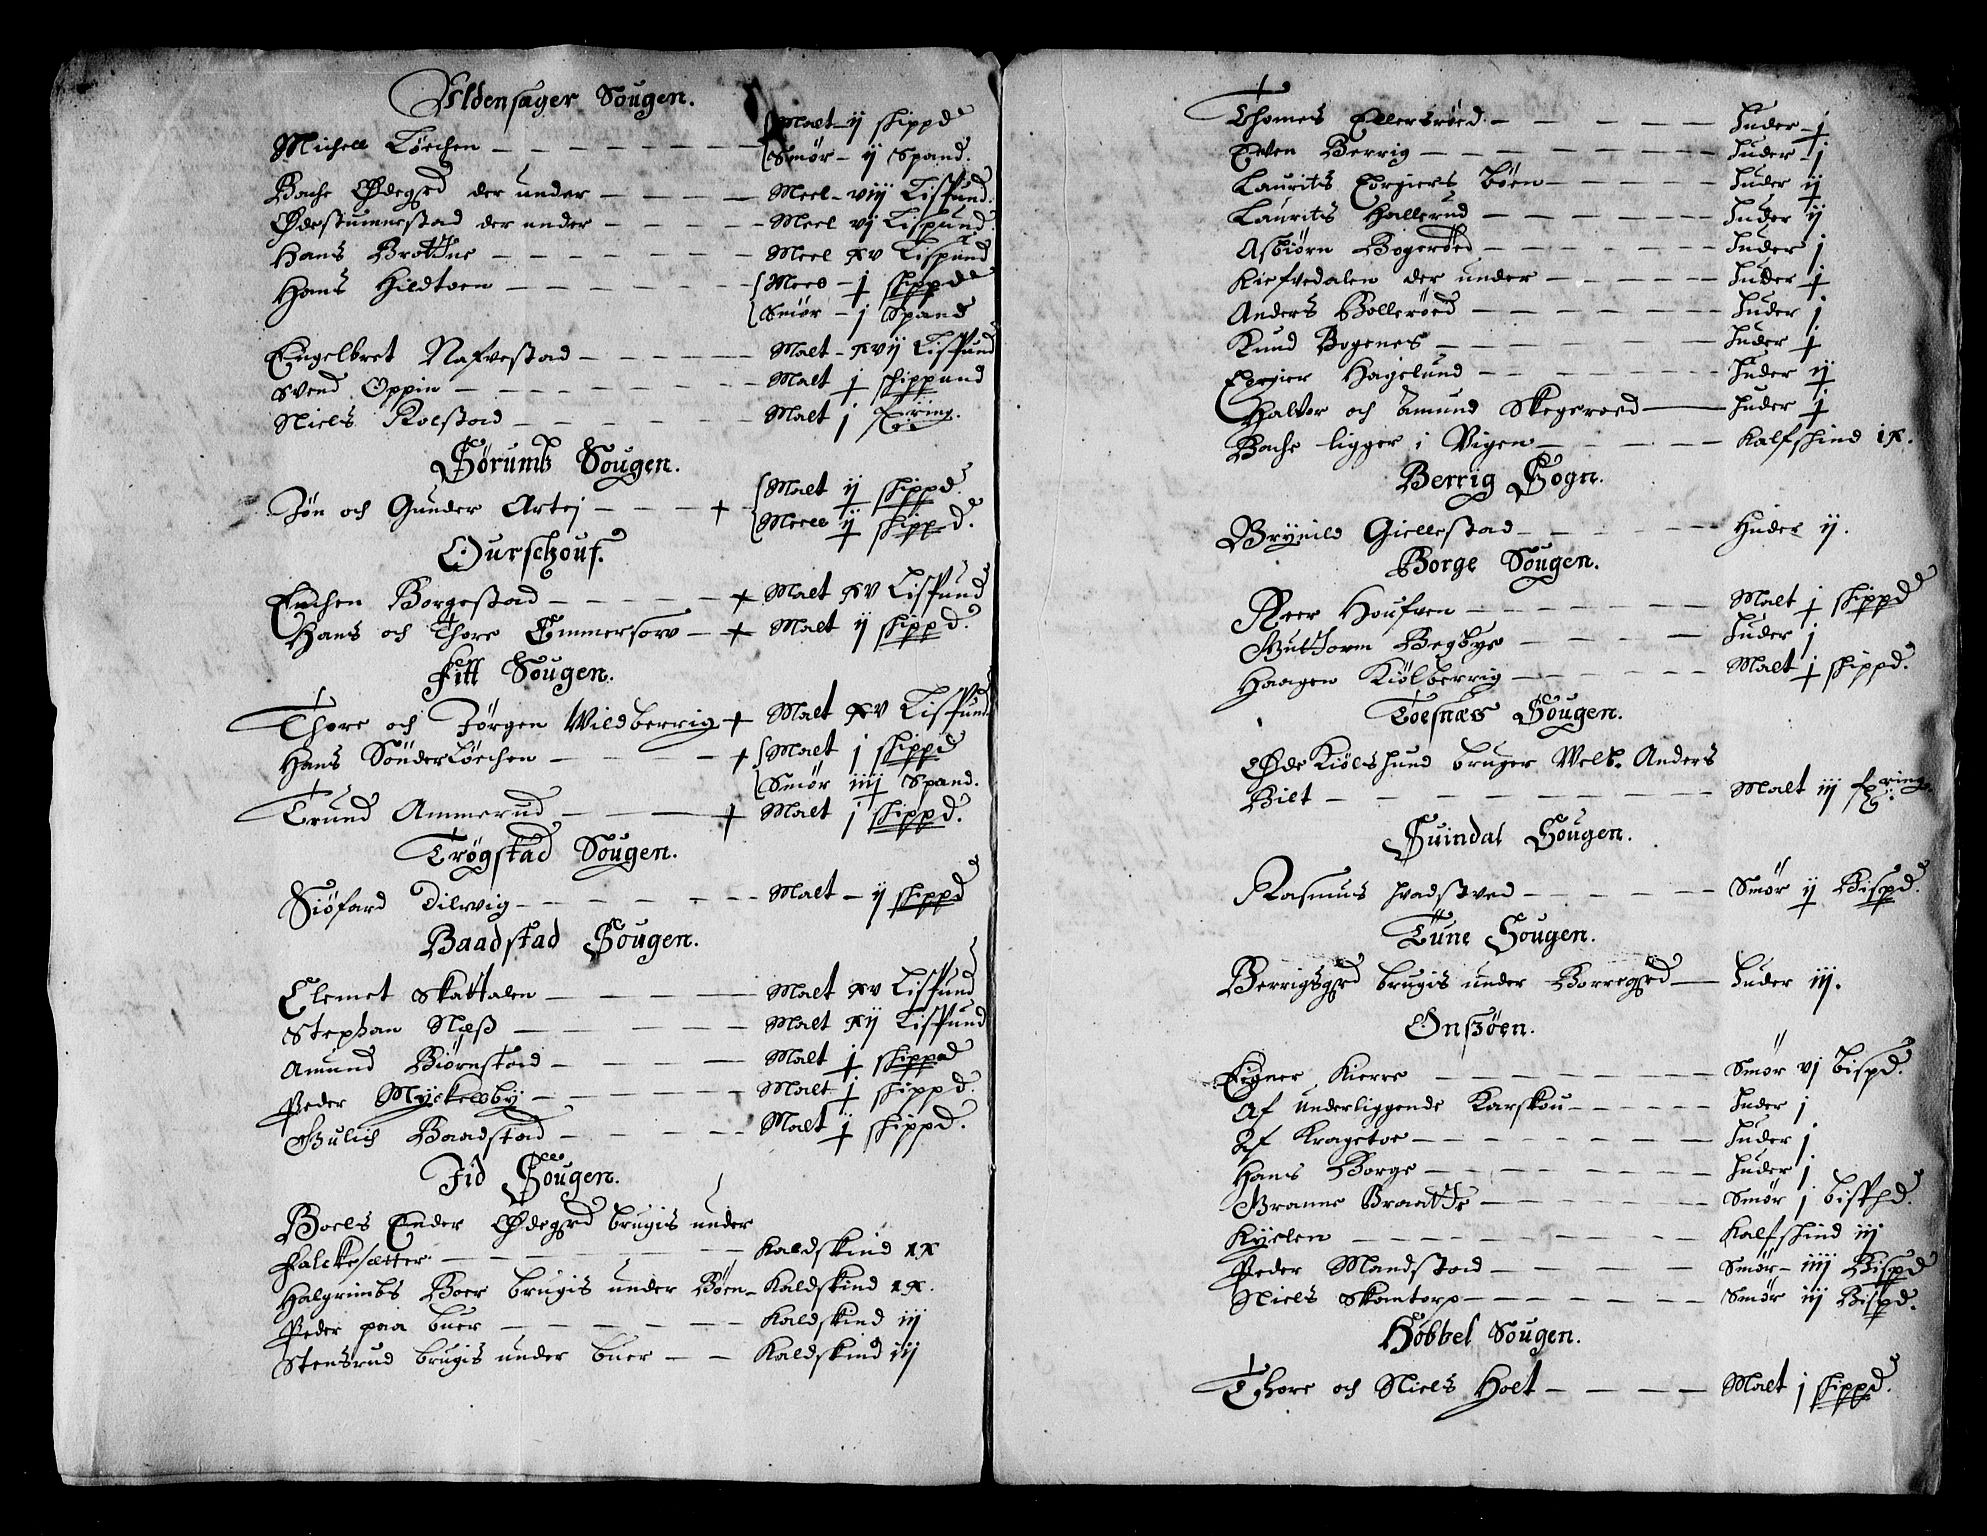 Uldensager Sougen.
Michel Løechen — Malt ij skippd
Smør — ij Spand.
Bache Ødegrd der under — Meel viij Lispund.
Ødestumnestad der under — Meel vj Lispund.
Hans Brottne — Meel xv Lispund
Hans Hildtoen — Meel — j skippd
Smør — j Spand
Engelbret Nafvestad — Malt — xvij Lispund
Svend Oppin — Malt j skippund
Niels Rolstad — Malt j fxring.
Sørumb Sougen.
Jøn och Gunder Artej — + Malt ij skippd.
Meell ij skippd.
Ourschouf.
Enchen Borgestad — + Malt xv Lispund
Hans och Thore Emmersorv — + Malt ij skippd.
Fitt Sougen.
Thore och Jørgen Wildberrig + Malt xv Lispund.
Hans Sønderløechen — + Malt j skippd
Smør iiij Spand.
Trund Ammerud — + Malt j skippd.
Trøgstad Sougen.
Siøfard Dilwig — Malt — ij skippd
Baadstad Sougen.
Clemet Skattalen — Malt xv Lispund
Stephan Næss — Malt xij Lispund
Amund Biørnstad — Malt j skippd
Peder Myckelsby — Malt j skippd.
Gulich Baadstad — Malt ij skippd.
Jid Sougen.
Boels Ender Ødegrd brugis under
Falckesætter — Kaldskind ix
Halgrimbs Boer brugis under Bøen — Kaldskind ix.
Peder paa buer — Kaldskind iij
Stensrud brugis under buer — Kaldskind iij
Thomes Ellersrøed — Huder — j
Even Berrig — Huder — j
Laurits Torgiers Bøen — Huder ij
Laurits Hallerud — Huder ij
Asbiørn Bogerøed — Huder j
Kiefvedalen der under — Huder j
Anders Bollerøed — Huder j
Knud Bogenes — Huder j
Torgier Hagelund — Huder ij
Halvor och Amund Skegeroed — Huder j
Bache ligger i Vigen — Kalfskind ix.
Berrig Sogn.
Brynild Giellestad — Huder ij.
Borge Sougen.
Peer Houfven — Malt j skippd
Guttorm Begbye — Huder j
Haagen Kiølberrig — Malt j skippd.
Toesnæs Sougen.
Øde Kiølshund bruger Welb. Anders
Bilt — Malt iij fxring.
Suindal Sougen.
Rasmus Hvadstved — Smør ij Bispd.
Tune Sougen.
Berrigsgrd brugis under Borregrd — Huder iij.
Onsøen.
Eigner Kierre — Smør vj bispd.
Af underliggende Karskou — Huder j
Af Kragetoe — Huder j
Hans Borge — Huder j
Granne Braatte — Smør j bispd.
Kyelen — Kalfskind iij
Peder Mandstad — Smør — iiij Bispd
Niels Skantorp — Smør iij Bispd.
Hobbel Sougen.
Thore och Niels Holt — Malt j skippd.